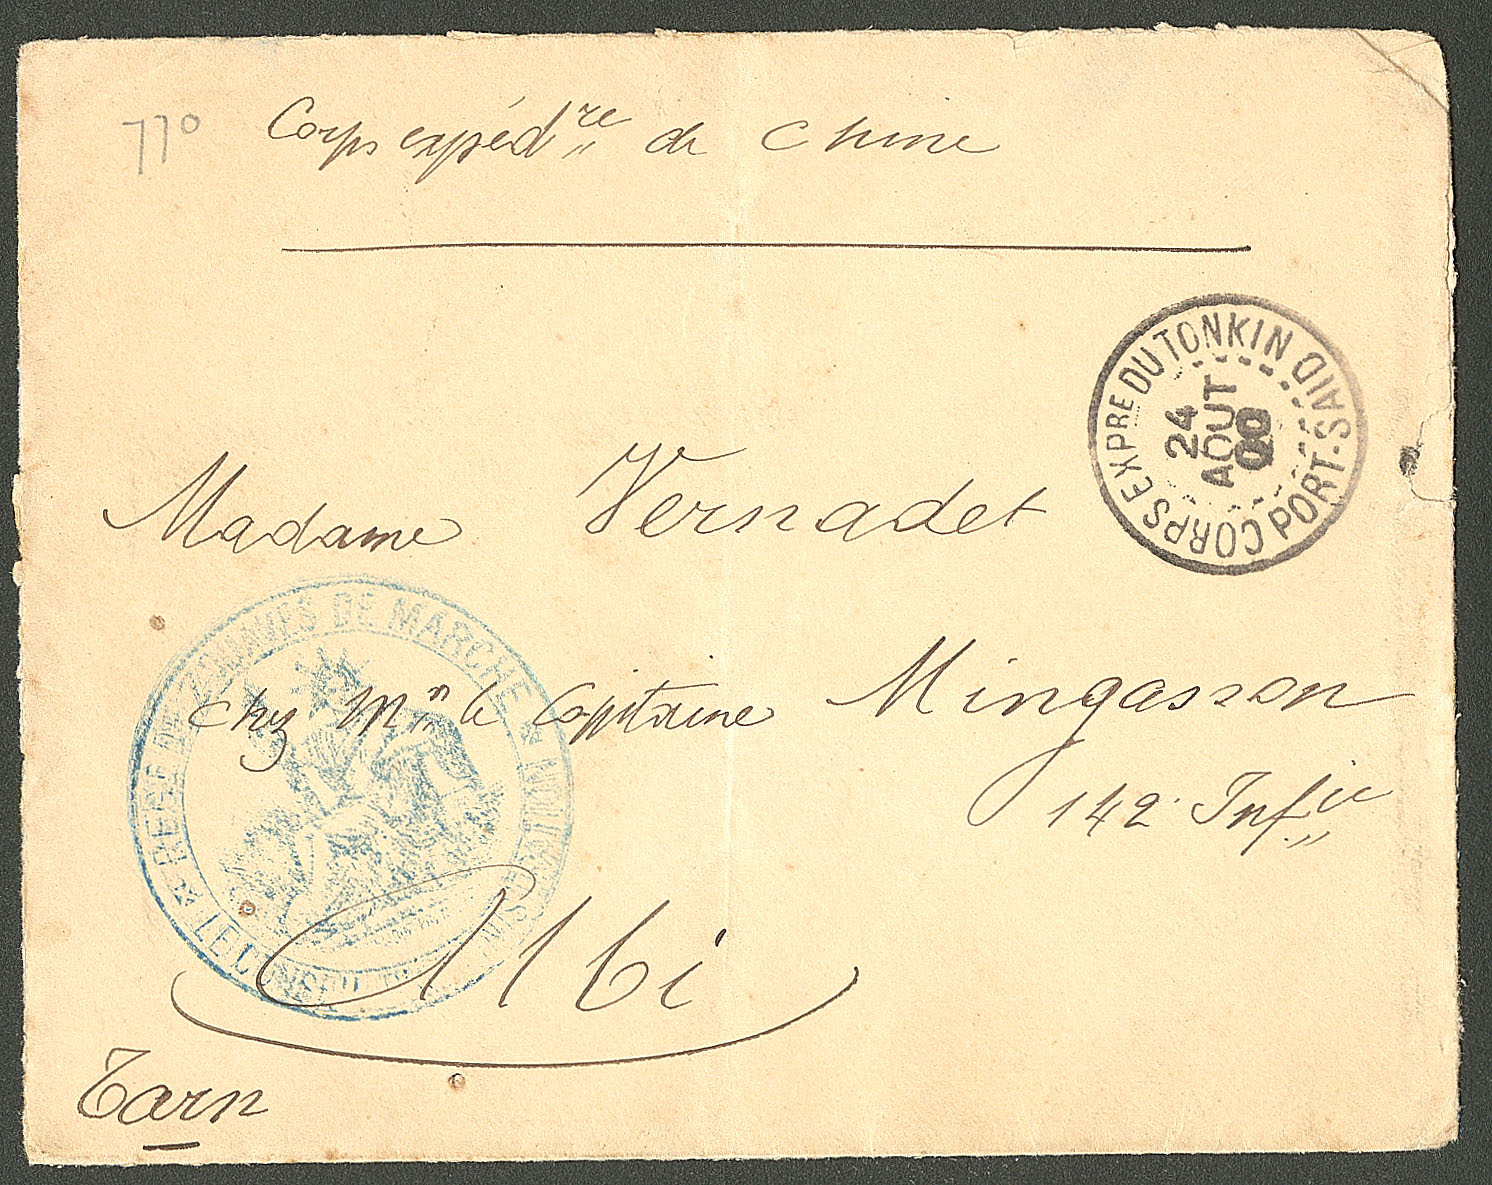 77°
Corps expédre de Chine
CORPS EXPRE DU TONKIN PORT-SAID
24
AOUT
00
Madame Vernadet
REGt DE ZOUAVES DE MARCHE
LE CONSEIL
chez Mr le Capitaine Mingasson
142 Infie
Albi
Tarn